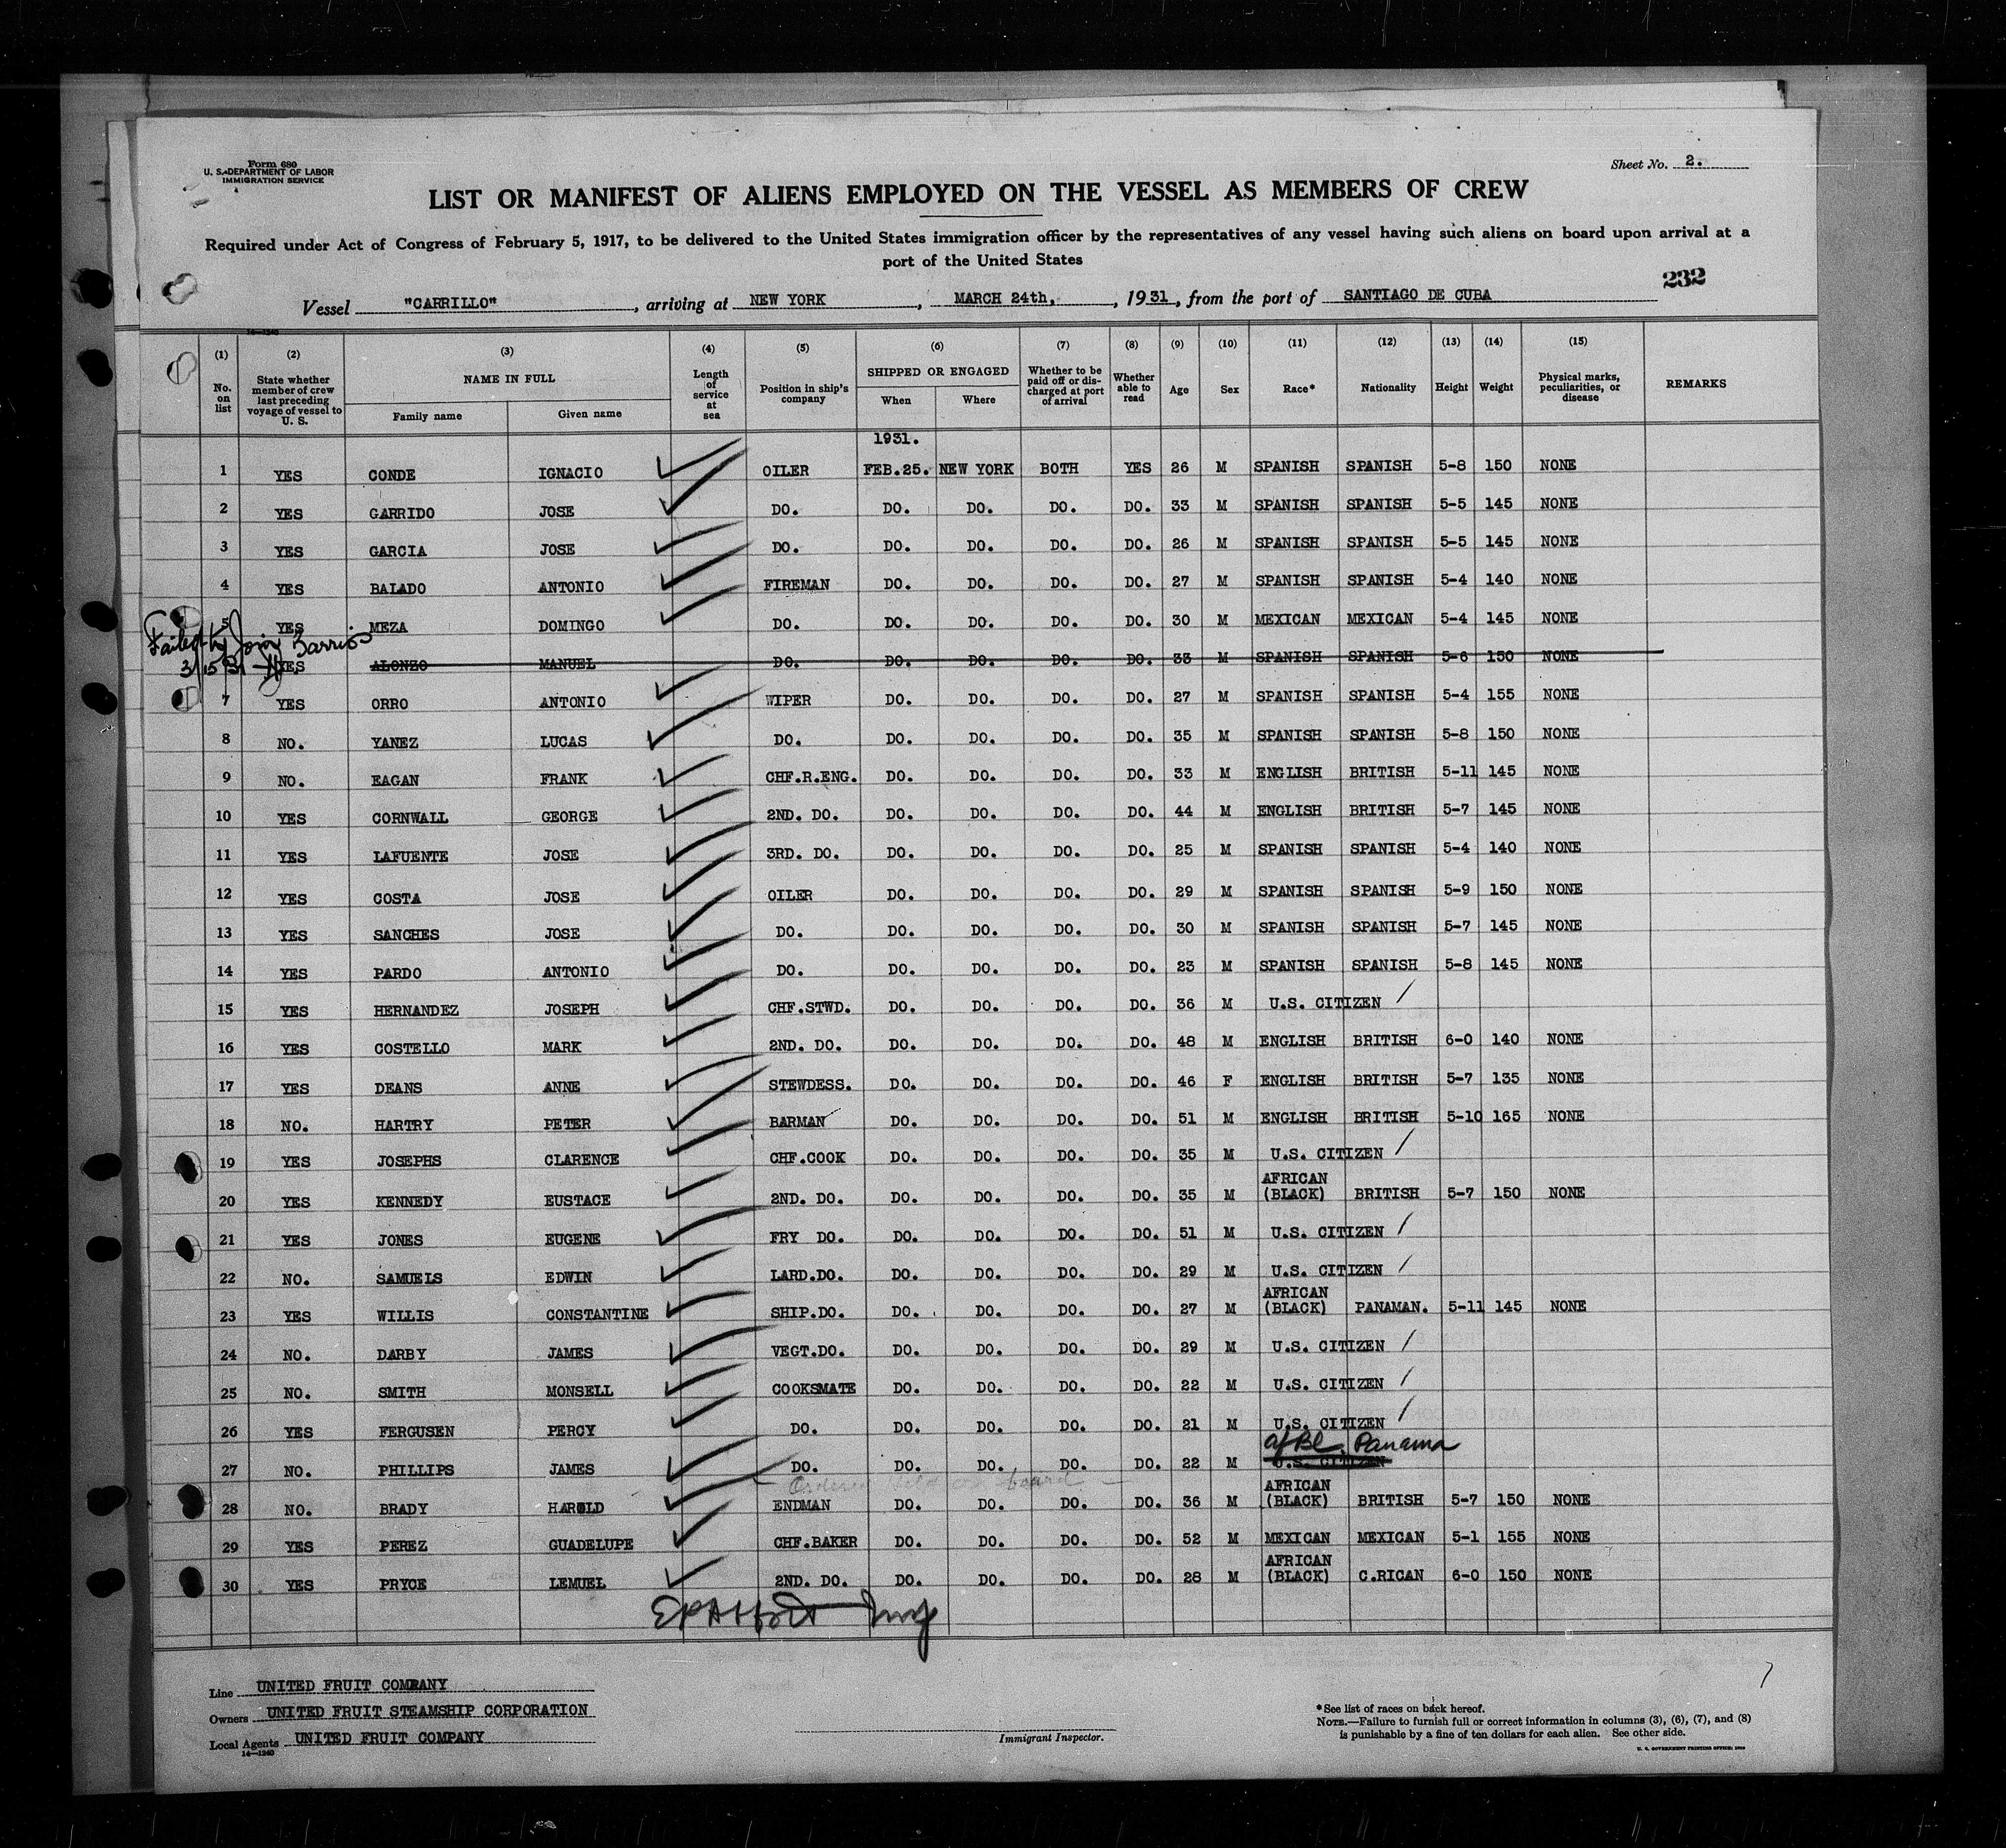 Form 680
U. S. DEPARTMENT OF LABOR
IMMIGRATION SERVICE
Sheet No. 2.
LIST OR MANIFEST OF ALIENS EMPLOYED ON THE VESSEL AS MEMBERS OF CREW
Required under Act of Congress of February 5, 1917, to be delivered to the United States immigration officer by the representatives of any vessel having such aliens on board upon arrival at a
port of the United States
232
Vessel "CARRILLO", arriving at NEW YORK, MARCH 24th, 1931, from the port of SANTIAGO DE CUBA
14-1240
(1) (2) (3) (4) (5) (6) (7) (8) (9) (10) (11) (12) (13) (14) (15)
No. on list State whether member of crew last preceding voyage of vessel to U. S. NAME IN FULL Family name Given name Length of service at sea Position in ship's company SHIPPED OR ENGAGED When Where Whether to be paid off or discharged at port of arrival Whether able to read Age Sex Race* Nationality Height Weight Physical marks, peculiarities, or disease REMARKS
1931.
1 YES CONDE IGNACIO OILER FEB.25. NEW YORK BOTH YES 26 M SPANISH SPANISH 5-8 150 NONE
2 YES GARRIDO JOSE DO. DO. DO. DO. DO. 33 M SPANISH SPANISH 5-5 145 NONE
3 YES GARCIA JOSE DO. DO. DO. DO. DO. 26 M SPANISH SPANISH 5-5 145 NONE
4 YES BALADO ANTONIO FIREMAN DO. DO. DO. DO. 27 M SPANISH SPANISH 5-4 140 NONE
5 YES MEZA DOMINGO DO. DO. DO. DO. DO. 30 M MEXICAN MEXICAN 5-4 145 NONE
Failed to join Barrios
3/15/31 YES ALONZO MANUEL DO. DO. DO. DO. DO. 33 M SPANISH SPANISH 5-6 150 NONE
7 YES ORRO ANTONIO WIPER DO. DO. DO. DO. 27 M SPANISH SPANISH 5-4 155 NONE
8 NO. YANEZ LUCAS DO. DO. DO. DO. DO. 35 M SPANISH SPANISH 5-8 150 NONE
9 NO. EAGAN FRANK CHF.R.ENG. DO. DO. DO. DO. 33 M ENGLISH BRITISH 5-11 145 NONE
10 YES CORNWALL GEORGE 2ND. DO. DO. DO. DO. DO. 44 M ENGLISH BRITISH 5-7 145 NONE
11 YES LAFUENTE JOSE 3RD. DO. DO. DO. DO. DO. 25 M SPANISH SPANISH 5-4 140 NONE
12 YES COSTA JOSE OILER DO. DO. DO. DO. 29 M SPANISH SPANISH 5-9 150 NONE
13 YES SANCHES JOSE DO. DO. DO. DO. DO. 30 M SPANISH SPANISH 5-7 145 NONE
14 YES PARDO ANTONIO DO. DO. DO. DO. DO. 23 M SPANISH SPANISH 5-8 145 NONE
15 YES HERNANDEZ JOSEPH CHF.STWD. DO. DO. DO. DO. 36 M U.S. CITIZEN /
16 YES COSTELLO MARK 2ND. DO. DO. DO. DO. DO. 48 M ENGLISH BRITISH 6-0 140 NONE
17 YES DEANS ANNE STEWDESS. DO. DO. DO. DO. 46 F ENGLISH BRITISH 5-7 135 NONE
18 NO. HARTRY PETER BARMAN DO. DO. DO. DO. 51 M ENGLISH BRITISH 5-10 165 NONE
19 YES JOSEPHS CLARENCE CHF.COOK DO. DO. DO. DO. 35 M U.S. CITIZEN /
20 YES KENNEDY EUSTACE 2ND. DO. DO. DO. DO. DO. 35 M AFRICAN (BLACK) BRITISH 5-7 150 NONE
21 YES JONES EUGENE FRY DO. DO. DO. DO. DO. 51 M U.S. CITIZEN /
22 NO. SAMUELS EDWIN LARD.DO. DO. DO. DO. DO. 29 M U.S. CITIZEN /
23 YES WILLIS CONSTANTINE SHIP.DO. DO. DO. DO. DO. 27 M AFRICAN (BLACK) PANAMAN. 5-11 145 NONE
24 NO. DARBY JAMES VEGT.DO. DO. DO. DO. DO. 29 M U.S. CITIZEN /
25 NO. SMITH MONSELL COOKSMATE DO. DO. DO. DO. 22 M U.S. CITIZEN /
26 YES FERGUSEN PERCY DO. DO. DO. DO. DO. 21 M U.S. CITIZEN /
Af Bl Panama
27 NO. PHILLIPS JAMES DO. DO. DO. DO. DO. 22 M U.S. CITIZEN
Ordered on board
28 NO. BRADY HAROLD ENDMAN DO. DO. DO. DO. 36 M AFRICAN (BLACK) BRITISH 5-7 150 NONE
29 YES PEREZ GUADELUPE CHF.BAKER DO. DO. DO. DO. 52 M MEXICAN MEXICAN 5-1 155 NONE
30 YES PRYCE LEMUEL 2ND. DO. DO. DO. DO. DO. 28 M AFRICAN (BLACK) C.RICAN 6-0 150 NONE
Line UNITED FRUIT COMPANY
Owners UNITED FRUIT STEAMSHIP CORPORATION
Local Agents UNITED FRUIT COMPANY
14-1240
Immigrant Inspector.
*See list of races on back hereof.
NOTE.—Failure to furnish full or correct information in columns (3), (6), (7), and (8)
is punishable by a fine of ten dollars for each alien. See other side.